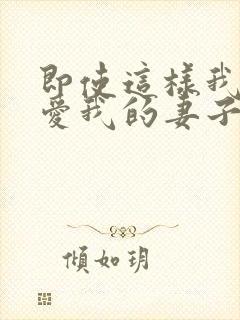 即使這樣我
愛我的妻子
傾如玥